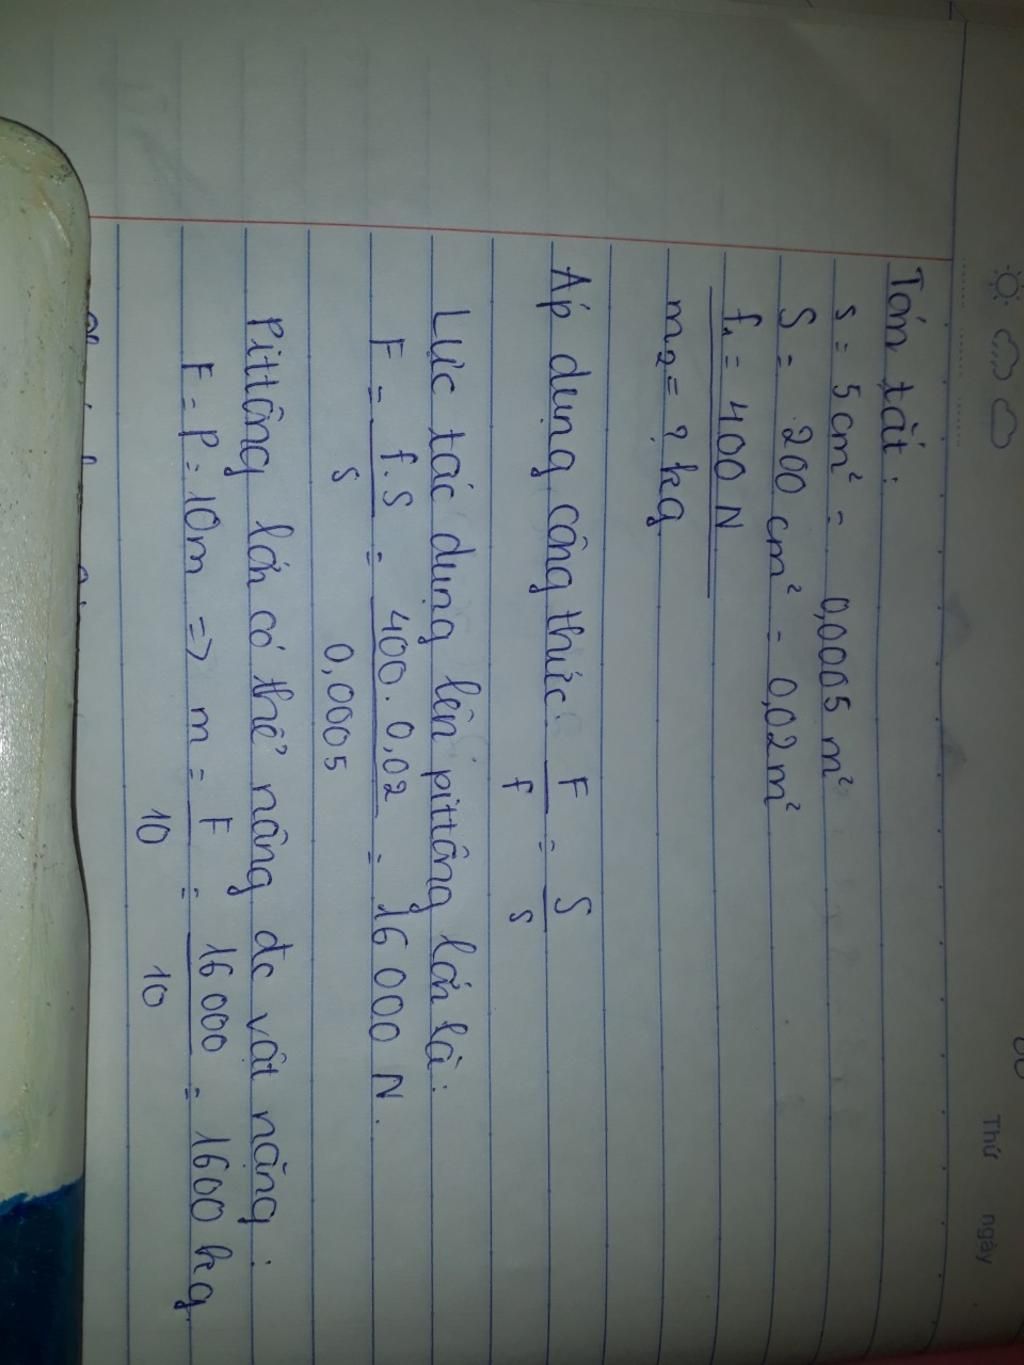 Thứ ngày
Tóm tắt:
s = 5cm² = 0,0005 m²
S = 200 cm² = 0,02m²
f₁ = 400 N
m₂ = ? kg
Áp dụng công thức: F/f = S/s
Lực tác dụng lên pittông lớn là:
F = f.S/s = 400.0,02/0,0005 = 16 000 N.
Pittông lớn có thể nâng đc vật nặng:
F = P = 10m => m = F/10 = 16 000/10 = 1600 kg.